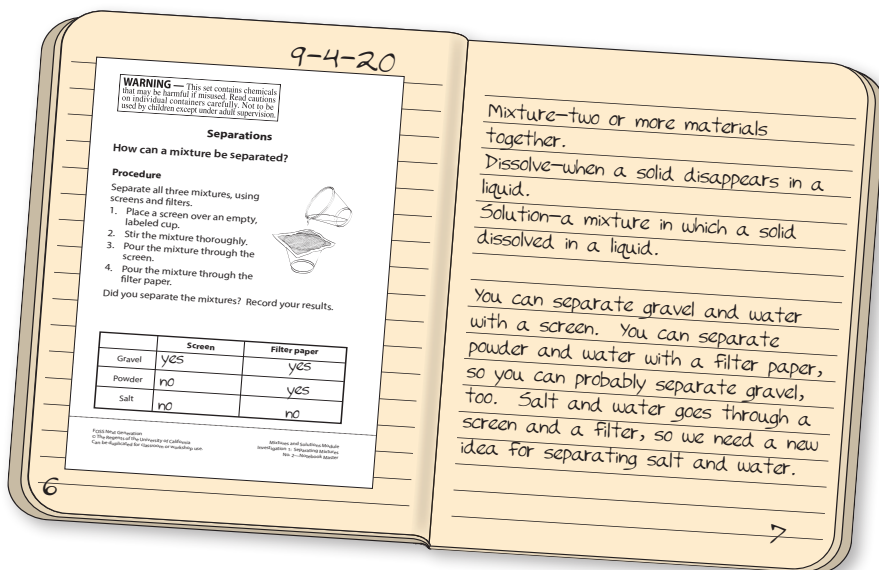 9-4-20
WARNING — This set contains chemicals
that may be harmful if misused. Read cautions
on individual containers carefully. Not to be
used by children except under adult supervision.
Separations
How can a mixture be separated?
Procedure
Separate all three mixtures, using
screens and filters.
1. Place a screen over an empty,
labeled cup.
2. Stir the mixture thoroughly.
3. Pour the mixture through the
screen.
4. Pour the mixture through the
filter paper.
Did you separate the mixtures? Record your results.
Screen Filter paper
Gravel yes yes
Powder no yes
Salt no no
FOSS Next Generation
© The Regents of the University of California
Can be duplicated for classroom or workshop use.
Mixtures and Solutions Module
Investigation 1: Separating Mixtures
No. 2—Notebook Master
6
Mixture—two or more materials
together.
Dissolve—when a solid disappears in a
liquid.
Solution—a mixture in which a solid
dissolved in a liquid.
You can separate gravel and water
with a screen. You can separate
powder and water with a filter paper,
so you can probably separate gravel,
too. Salt and water goes through a
screen and a filter, so we need a new
idea for separating salt and water.
7